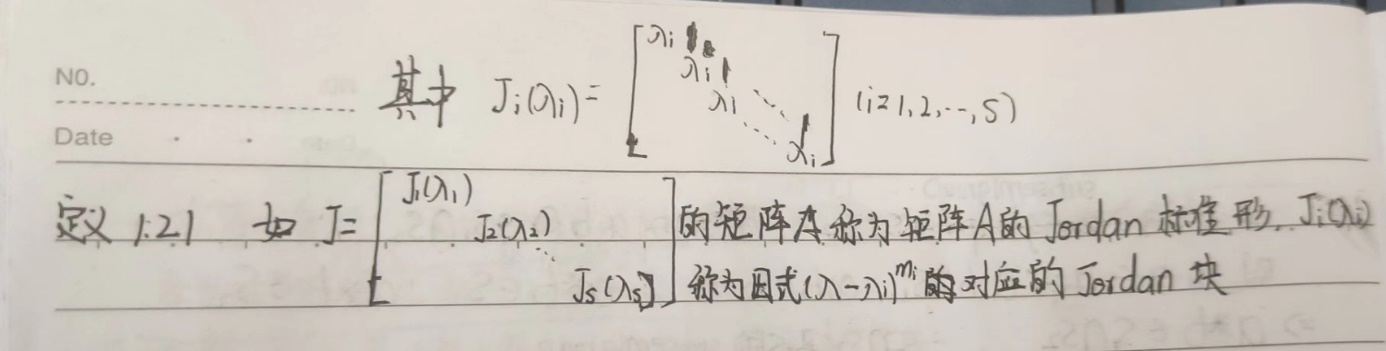 NO.
其中 J_i(λ_i) = [λ_i 1 λ_i 1 λ_i ⋱ ⋱ 1 λ_i] (i=1,2,…,s)
Date
定义 1.21 如 J = [J_1(λ_1) J_2(λ_2) ⋱ J_s(λ_s)] 的矩阵 称为矩阵A的 Jordan 标准形, J_i(λ_i)
称为因式(λ-λ_i)^{m_i} 对应的 Jordan 块